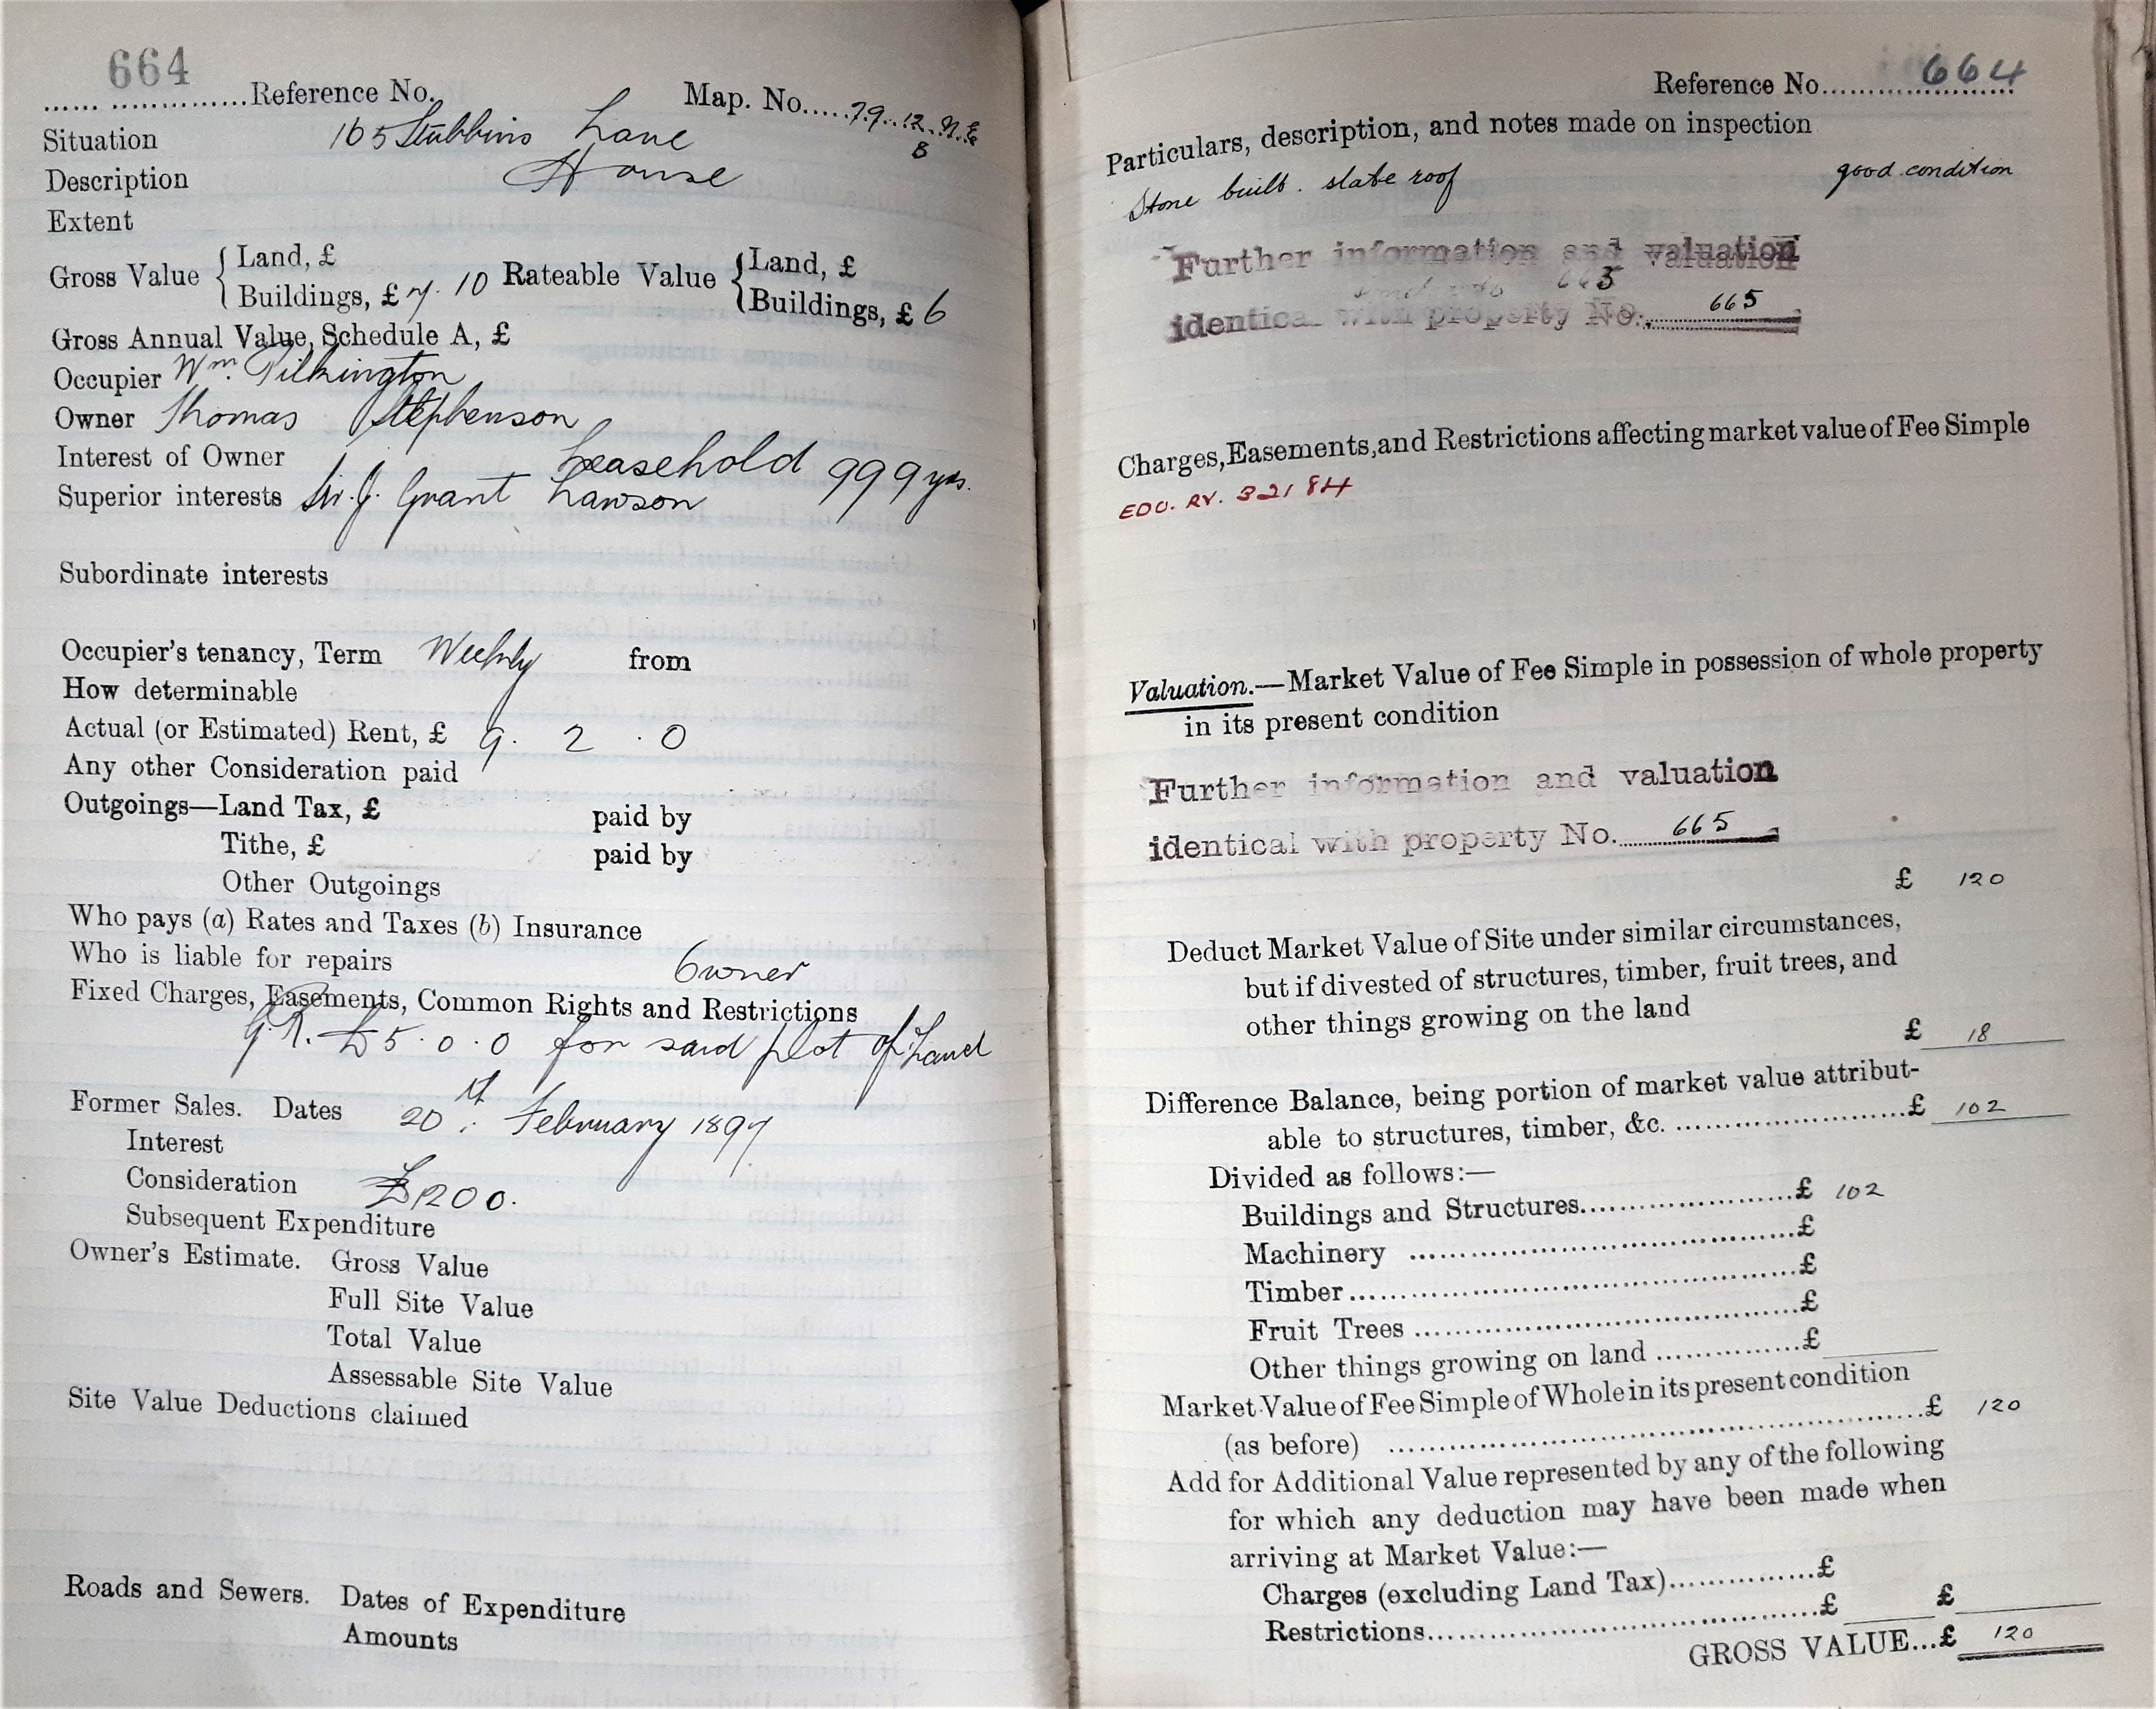 664
...... ..............Reference No.
Map. No.....79..12..N.E
B
Situation 165 Stubbins Lane
Description House
Extent
Gross Value { Land, £ Rateable Value { Land, £
Buildings, £ 7. 10 Buildings, £ 6
Gross Annual Value, Schedule A, £
Occupier Wm. Pilkington
Owner Thomas Stephenson
Interest of Owner Leasehold 999 yrs.
Superior interests Sir. J. Grant Lawson
Subordinate interests
Occupier's tenancy, Term Weekly from
How determinable
Actual (or Estimated) Rent, £ 9. 2 . 0
Any other Consideration paid
Outgoings—Land Tax, £ paid by
Tithe, £ paid by
Other Outgoings
Who pays (a) Rates and Taxes (b) Insurance
Who is liable for repairs Owner
Fixed Charges, Easements, Common Rights and Restrictions
G.R. £5.0.0 for said plot of Land
Former Sales. Dates 20th February 1897
Interest
Consideration £1200.
Subsequent Expenditure
Owner's Estimate. Gross Value
Full Site Value
Total Value
Assessable Site Value
Site Value Deductions claimed
Roads and Sewers. Dates of Expenditure
Amounts
Reference No. 664
Particulars, description, and notes made on inspection
Stone built. slate roof good condition
Further information and valuation
665
identical with property No. 665
Charges, Easements, and Restrictions affecting market value of Fee Simple
EDO. RV. 32184
Valuation.—Market Value of Fee Simple in possession of whole property
in its present condition
Further information and valuation
identical with property No. 665
£ 120
Deduct Market Value of Site under similar circumstances,
but if divested of structures, timber, fruit trees, and
other things growing on the land
£ 18
Difference Balance, being portion of market value attribut-
able to structures, timber, &c. ........................£ 102
Divided as follows:—
Buildings and Structures........................£ 102
Machinery ........................£
Timber........................£
Fruit Trees ........................£
Other things growing on land ................£
Market Value of Fee Simple of Whole in its present condition
(as before) ........................£ 120
Add for Additional Value represented by any of the following
for which any deduction may have been made when
arriving at Market Value:—
Charges (excluding Land Tax)................£
Restrictions........................£ £
GROSS VALUE...£ 120